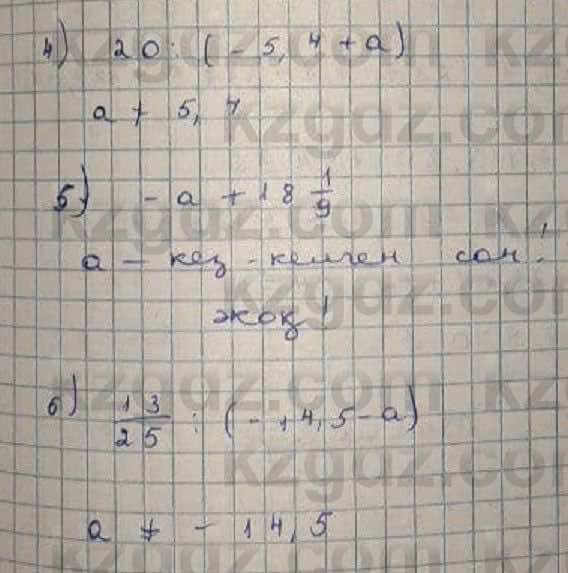 4) 20 : (-5,4 + a)
a ≠ 5,4
5) - a + 18 1/9
a - кез-келген сан!
жоқ!
6) 13/25 : (-14,5 - a)
a ≠ - 14,5
kzgdz.com